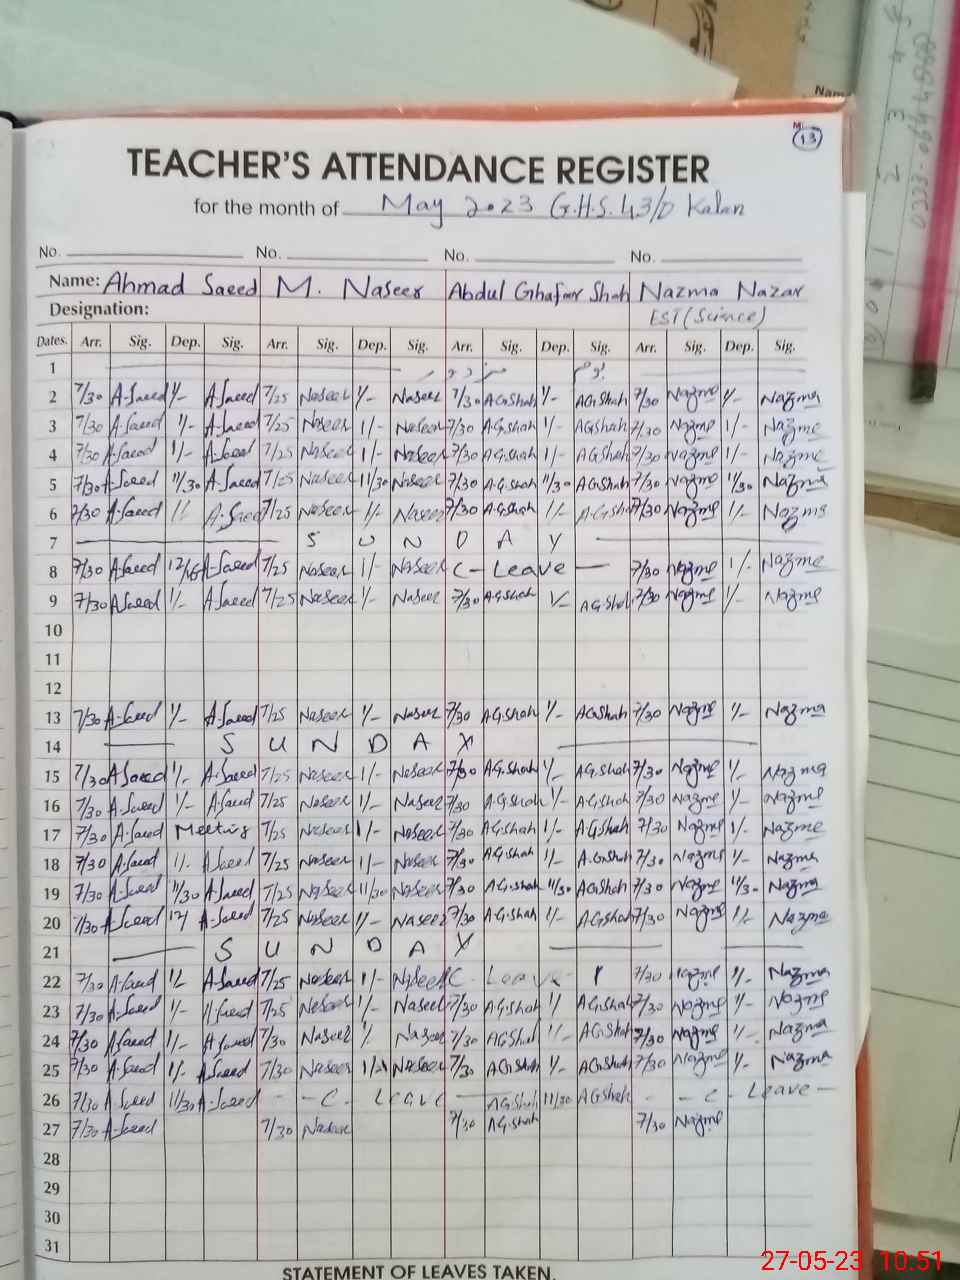 Name
13
TEACHER'S ATTENDANCE REGISTER
for the month of May 2023 G.H.S. 43/D Kalan
No. No. No. No.
Name: Ahmad Saeed M. Naseer Abdul Ghafoor Shah Nazma Nazar
Designation: EST (Science)
Dates. Arr. Sig. Dep. Sig. Arr. Sig. Dep. Sig. Arr. Sig. Dep. Sig. Arr. Sig. Dep. Sig.
1 یوم مزدور
2 7/30 A.Saeed 1/- A.Saeed 7/25 Naseer 1/- Naseer 7/30 AGShah 1/- AGShah 7/30 Nazma 1/- Nazma
3 7/30 A.Saeed 1/- A.Saeed 7/25 Naseer 1/- Naseer 7/30 A.G.Shah 1/- AGShah 7/30 Nazma 1/- Nazma
4 7/30 A.Saeed 1/- A.Saeed 7/25 Naseer 1/- Naseer 7/30 A.G.Shah 1/- AGShah 7/30 Nazma 1/- Nazma
5 7/30 A.Saeed 11/30 A.Saeed 7/25 Naseer 11/30 Naseer 7/30 A.G.Shah 11/30 AGShah 7/30 Nazma 11/30 Nazma
6 7/30 A.Saeed 1/- A.Saeed 7/25 Naseer 1/- Naseer 7/30 A.G.Shah 1/- A.G.Shah 7/30 Nazma 1/- Nazma
7 S U N D A Y
8 7/30 A.Saeed A.Saeed 7/25 Naseer 1/- Naseer C- Leave 7/30 Nazma 1/- Nazma
9 7/30 A.Saeed 1/- A.Saeed 7/25 Naseer 1/- Naseer 7/30 A.G.Shah 1/- AGShah 7/30 Nazma 1/- Nazma
10
11
12
13 7/30 A.Saeed 1/- A.Saeed 7/25 Naseer 1/- Naseer 7/30 A.G.Shah 1/- AGShah 7/30 Nazma 1/- Nazma
14 S U N D A Y
15 7/30 A.Saeed 1/- A.Saeed 7/25 Naseer 1/- Naseer 7/30 A.G.Shah 1/- A.G.Shah 7/30 Nazma 1/- Nazma
16 7/30 A.Saeed 1/- A.Saeed 7/25 Naseer 1/- Naseer 7/30 A.G.Shah 1/- A.G.Shah 7/30 Nazma 1/- Nazma
17 7/30 A.Saeed Meeting 7/25 Naseer 1/- Naseer 7/30 A.G.Shah 1/- A.G.Shah 7/30 Nazma 1/- Nazma
18 7/30 A.Saeed 1/- A.Saeed 7/25 Naseer 1/- Naseer 7/30 A.G.Shah 1/- A.G.Shah 7/30 Nazma 1/- Nazma
19 7/30 A.Saeed 11/30 A.Saeed 7/25 Naseer 11/30 Naseer 7/30 A.G.Shah 11/30 A.G.Shah 7/30 Nazma 11/30 Nazma
20 7/30 A.Saeed A.Saeed 7/25 Naseer 1/- Naseer 7/30 A.G.Shah 1/- A.G.Shah 7/30 Nazma 1/- Nazma
21 S U N D A Y
22 7/30 A.Saeed 1/- A.Saeed 7/25 Naseer 1/- Naseer C- Leave 7/30 Nazma 1/- Nazma
23 7/30 A.Saeed 1/- A.Saeed 7/25 Naseer 1/- Naseer 7/30 A.G.Shah 1/- A.G.Shah 7/30 Nazma 1/- Nazma
24 7/30 A.Saeed 1/- A.Saeed 7/30 Naseer 1/- Naseer 7/30 AGShah 1/- A.G.Shah 7/30 Nazma 1/- Nazma
25 7/30 A.Saeed 1/- A.Saeed 7/30 Naseer Naseer 7/30 A.G.Shah 1/- A.G.Shah 7/30 Nazma 1/- Nazma
26 7/30 A.Saeed 11/30 A.Saeed - - C. Leave - AGShah 11/30 AGShah - - C - Leave -
27 7/30 A.Saeed 7/30 Naseer 7/30 A.G.Shah 7/30 Nazma
28
29
30
31
STATEMENT OF LEAVES TAKEN.
27-05-23 10:51